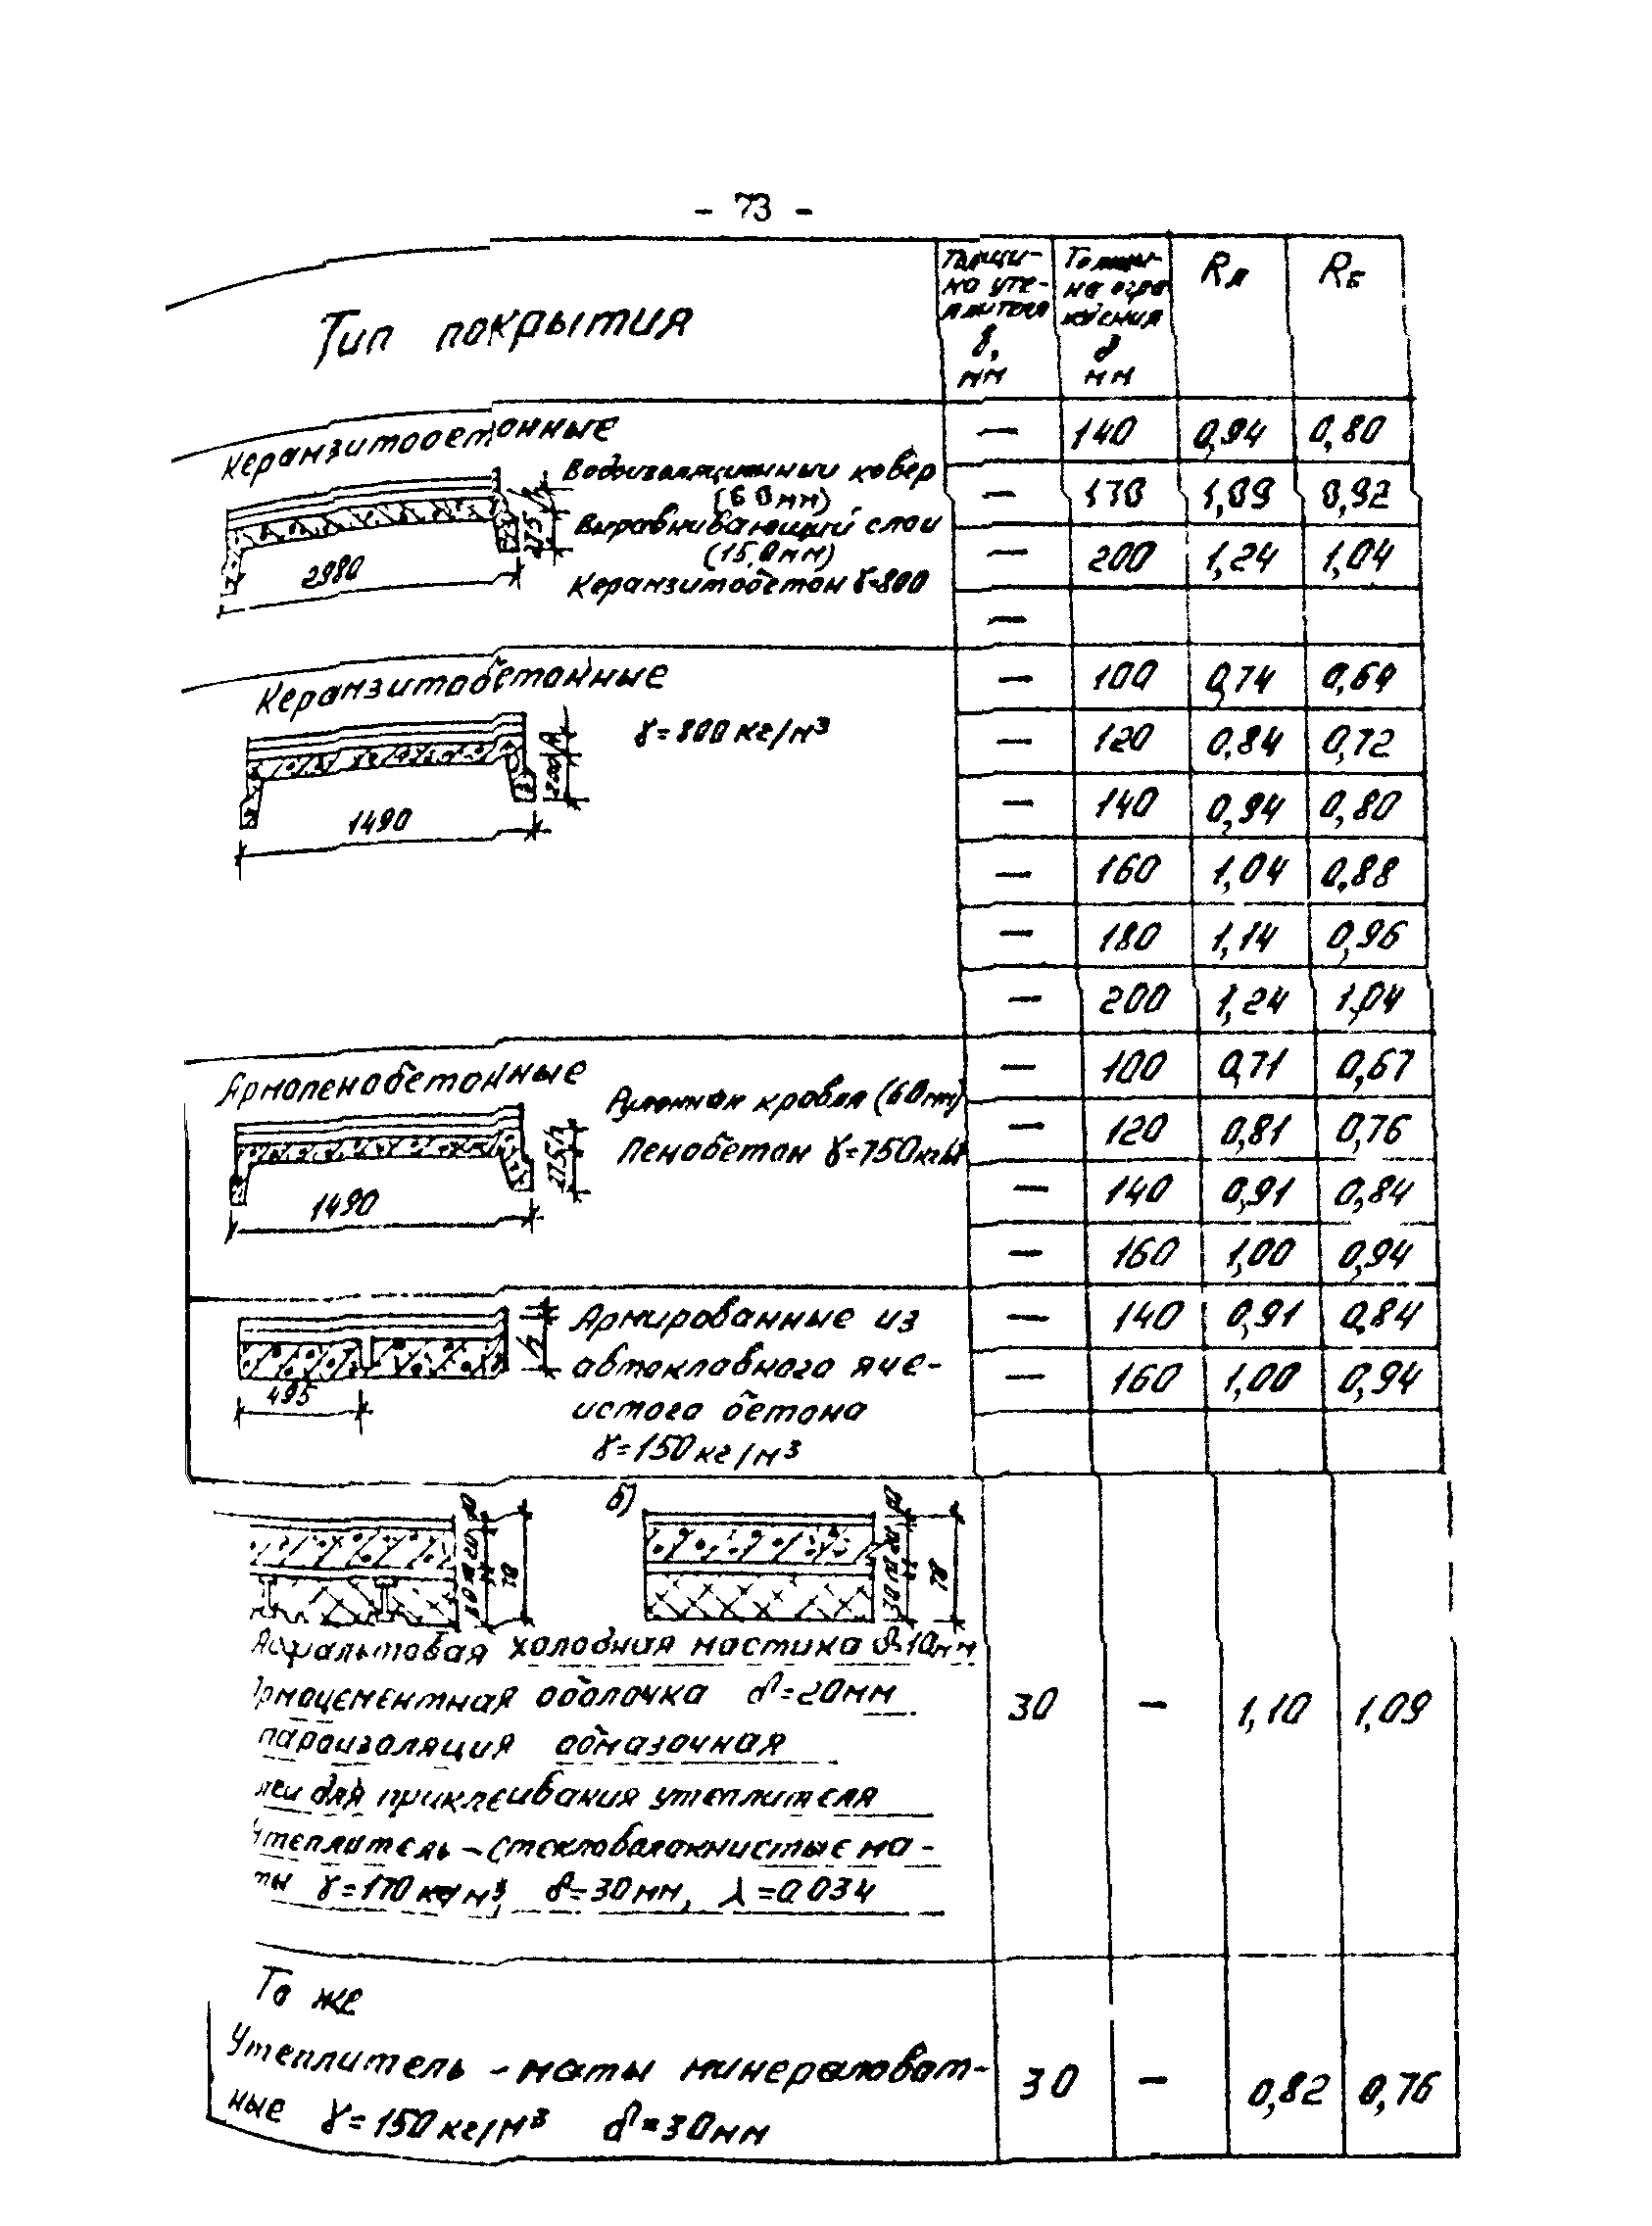 - 73 -
Тип покрытия
Толщи-
на уте-
плителя
δ,
мм
Толщи-
на огра
ждения
δ
мм
RА
RБ
Керамзитобетонные
Водоизоляционный ковер
(6 0 мм)
Выравнивающий слой
(15,0 мм)
Керамзитобетон γ=800
2980
275 h
— 140 0,94 0,80
— 170 1,09 0,92
— 200 1,24 1,04
—
Керамзитобетонные
γ=800 кг/м³
1490
200 h
— 100 0,74 0,64
— 120 0,84 0,72
— 140 0,94 0,80
— 160 1,04 0,88
— 180 1,14 0,96
— 200 1,24 1,04
Армопенобетонные
Рулонная кровля (60мм)
Пенобетон γ=750кг/м
1490
275 h
— 100 0,71 0,67
— 120 0,81 0,76
— 140 0,91 0,84
— 160 1,00 0,94
Армированные из
автоклавного яче-
истого бетона
γ=150 кг/м³
495
h
— 140 0,91 0,84
— 160 1,00 0,94
б)
Асфальтовая холодная мастика δ=10мм
Армоцементная оболочка δ=20мм
пароизоляция обмазочная
клей для приклеивания утеплителя
Утеплитель – стекловолокнистые ма-
ты γ=170 кг/м³, δ=30 мм, λ=0 034
30 — 1,10 1,09
То же
Утеплитель – маты минераловат-
ные γ=150 кг/м³ δ=30мм
30 — 0,82 0,76